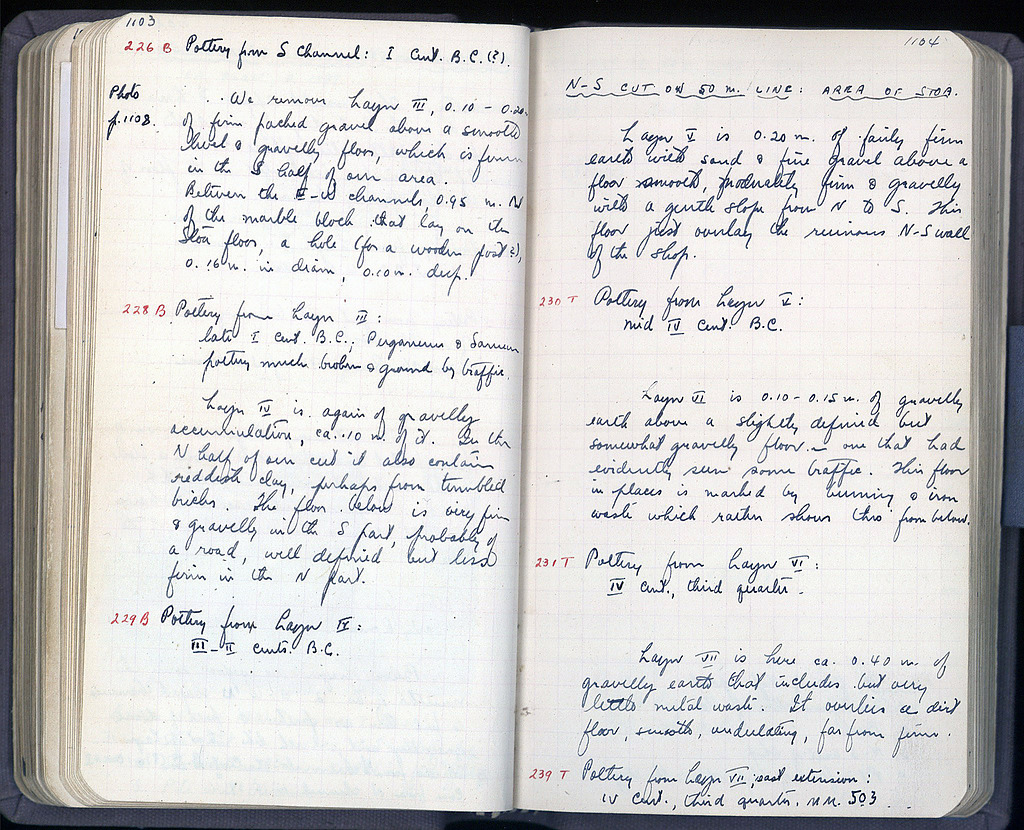 1103
226 B Pottery from S Channel: I Cent. B.C. (?).
Photo
p. 1108.
We remove Layer III, 0.10 - 0.20
of firm packed gravel above a smooth
level & gravelly floor, which is firm
in the S half of our area.
Between the E-W channels, 0.95 m. N
of the marble block that lay on the
Stoa floor, a hole (for a wooden post?),
0.16 m. in diam, 0.10 m. deep.
228 B Pottery from Layer III:
late I Cent. B.C.; Pergamene & Samian
pottery much broken & ground by traffic.
Layer IV is again of gravelly
accumulation, ca. .10 m. of it. In the
N half of our cut it also contains
reddish clay, perhaps from tumbled
bricks. The floor below is very firm
& gravelly in the S part, probably of
a road, well defined but less
firm in the N part.
229 B Pottery from Layer IV:
III-II Cents. B.C.
1104
N-S CUT ON 50 M. LINE: AREA OF STOA.
Layer V is 0.20 m. of fairly firm
earth with sand & fine gravel above a
floor smooth, moderately firm & gravelly
with a gentle slope from N to S. This
floor just overlay the ruinous N-S wall
of the Shop.
230 T Pottery from Layer V:
mid IV Cent. B.C.
Layer VI is 0.10 - 0.15 m. of gravelly
earth above a slightly defined but
somewhat gravelly floor - one that had
evidently seen some traffic. This floor
in places is marked by burning & iron
waste which rather shows thro' from below.
231 T Pottery from Layer VI:
IV Cent., third quarter.
Layer VII is here ca. 0.40 m. of
gravelly earth that includes but very
little metal waste. It overlies a dirt
floor, smooth, undulating, far from firm.
239 T Pottery from Layer VII; east extension:
IV Cent., third quarter. NN. 503